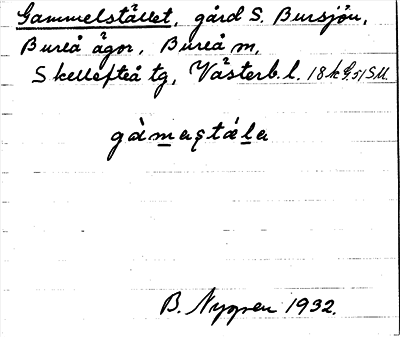 Gammelstället, gård S. Bursjön,
Bureå ägor, Bureå m,
Skellefteå tg, Västerb. l. 18k G.51 SU.
gàmastála
B. Nygren 1932.